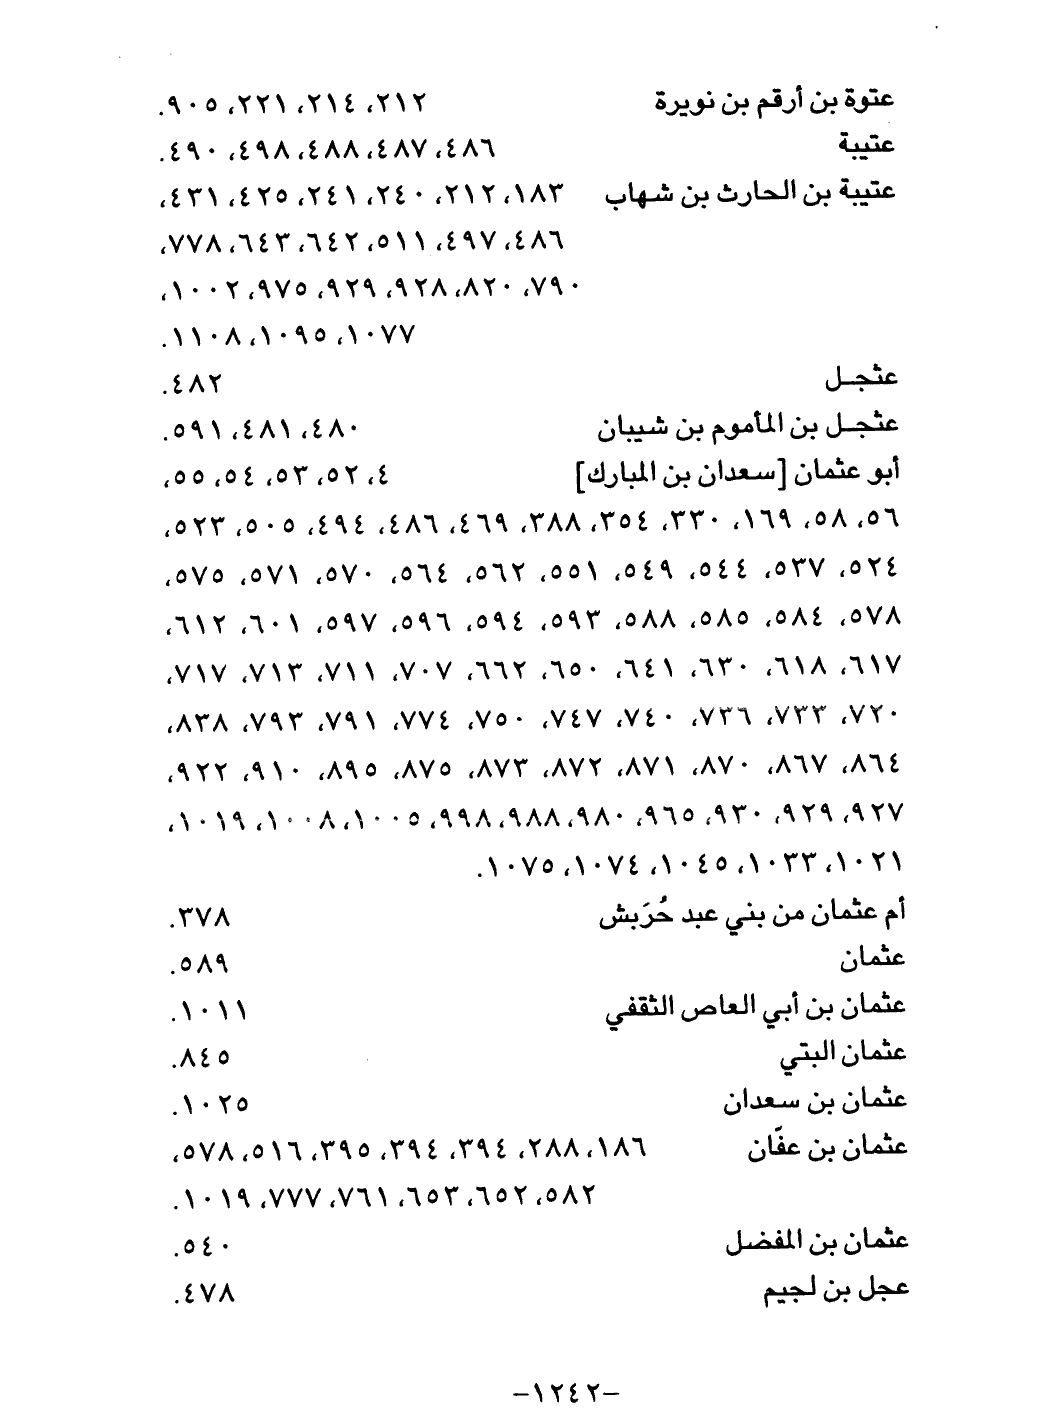 عتوة بن أرقم بن نويرة ٢١٢، ٢١٤، ٢٢١، ٩٠٥.
عتيبة ٤٨٦، ٤٨٧، ٤٨٨، ٤٩٨، ٤٩٠.
عتيبة بن الحارث بن شهاب ١٨٣، ٢١٢، ٢٤٠، ٢٤١، ٤٢٥، ٤٣١،
٤٨٦، ٤٩٧، ٥١١، ٦٤٢، ٦٤٣، ٧٧٨،
٧٩٠، ٨٢٠، ٩٢٨، ٩٢٩، ٩٧٥، ١٠٠٢،
١٠٧٧، ١٠٩٥، ١١٠٨.
عثجل ٤٨٢.
عثجل بن المأموم بن شيبان ٤٨٠، ٤٨١، ٥٩١.
أبو عثمان [سعدان بن المبارك] ٤، ٥٢، ٥٣، ٥٤، ٥٥،
٥٦، ٥٨، ١٦٩، ٣٣٠، ٣٥٤، ٣٨٨، ٤٦٩، ٤٨٦، ٤٩٤، ٥٠٥، ٥٢٣،
٥٢٤، ٥٣٧، ٥٤٤، ٥٤٩، ٥٥١، ٥٦٢، ٥٦٤، ٥٧٠، ٥٧١، ٥٧٥،
٥٧٨، ٥٨٤، ٥٨٥، ٥٨٨، ٥٩٣، ٥٩٤، ٥٩٦، ٥٩٧، ٦٠١، ٦١٢،
٦١٧، ٦١٨، ٦٣٠، ٦٤١، ٦٥٠، ٦٦٢، ٧٠٧، ٧١١، ٧١٣، ٧١٧،
٧٢٠، ٧٣٣، ٧٣٦، ٧٤٠، ٧٤٧، ٧٥٠، ٧٧٤، ٧٩١، ٧٩٣، ٨٣٨،
٨٦٤، ٨٦٧، ٨٧٠، ٨٧١، ٨٧٢، ٨٧٣، ٨٧٥، ٨٩٥، ٩١٠، ٩٢٢،
٩٢٧، ٩٢٩، ٩٣٠، ٩٦٥، ٩٨٠، ٩٨٨، ٩٩٨، ١٠٠٥، ١٠٠٨، ١٠١٩،
١٠٢١، ١٠٣٣، ١٠٤٥، ١٠٧٤، ١٠٧٥.
أم عثمان من بني عبد حُرَبش ٣٧٨.
عثمان ٥٨٩.
عثمان بن أبي العاص الثقفي ١٠١١.
عثمان البتي ٨٤٥.
عثمان بن سعدان ١٠٢٥.
عثمان بن عفّان ١٨٦، ٢٨٨، ٣٩٤، ٣٩٤، ٣٩٥، ٥١٦، ٥٧٨،
٥٨٢، ٦٥٢، ٦٥٣، ٧٦١، ٧٧٧، ١٠١٩.
عثمان بن المفضل ٥٤٠.
عجل بن لجيم ٤٧٨.
-١٢٤٢-